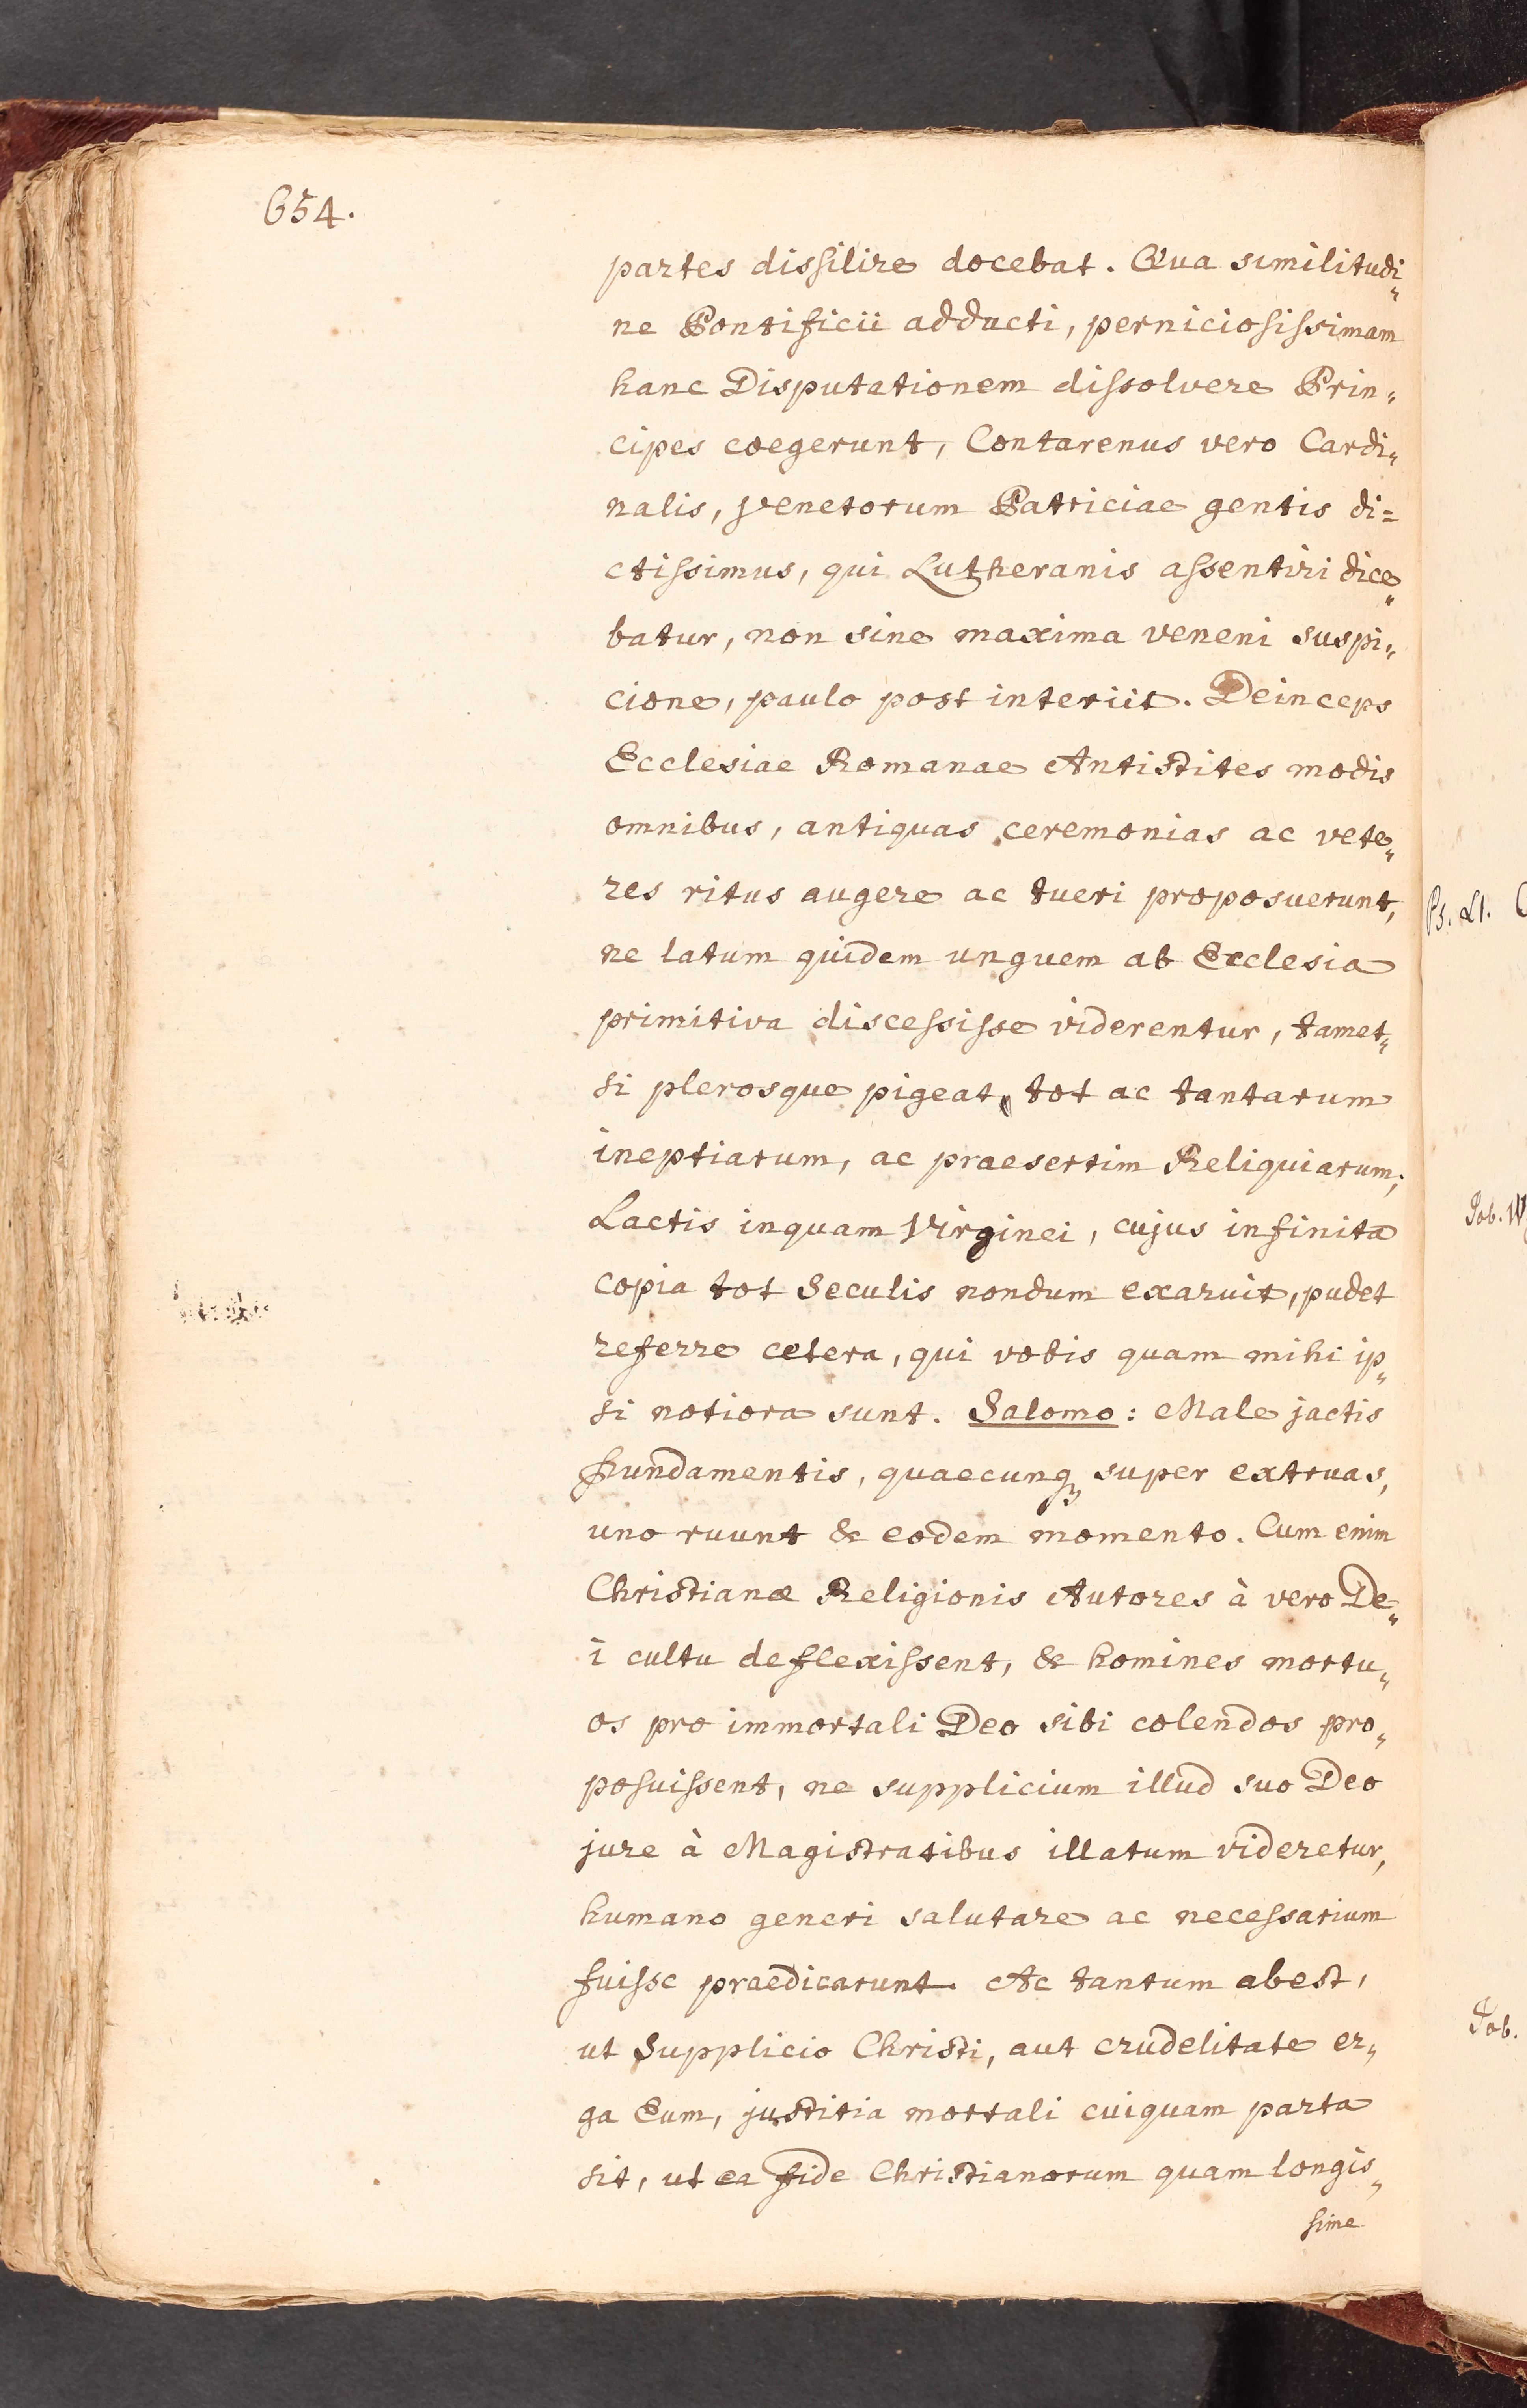 654.
partes dissilire docebat. Qua similitudi„
ne Pontificii adducti, perniciosissimam
hanc Disputationem dissolvere Prin„
cipes coegerunt, Contarenus vero Cardi„
nalis, Venetorum Patriciae gentis di=
ctissimus, qui Lutheranis assentiri dice„
batur, non sine maxima veneni suspi„
cione, paulo post interiit. Deinceps
Ecclesiae Romanae Antistites modis
omnibus, antiquas ceremonias ac vete„
res ritus augere ac tueri proposuerunt,
ne latum quidem unguem ab Ecclesia
primitiva discessisse viderentur, tamet„
si plerosque pigeat, tot ac tantarum
ineptiarum, ac praesertim Reliquiarum;
Lactis inquam Virginei, cujus infinita
copia tot Seculis nondum exaruit, pudet
referre cetera, qui vobis quam mihi ip„
si notiora sunt. Salomo: Male jactis
fundamentis, quaecunq; super extruas,
uno ruunt & eodem momento. Cum enim
Christianæ Religionis Autores à vero De„
i cultu deflexissent, & homines mortu„
os pro immortali Deo sibi colendos pro„
posuissent, ne supplicium illud suo Deo
jure à Magistratibus illatum videretur,
humano generi salutare ac necessarium
fuisse praedicarunt. Ac tantum abest,
ut Supplicio Christi, aut crudelitate er„
ga Eum, justitia mortali cuiquam parta
sit, ut ea fide Christianorum quam longis„
sime
Ps. LI.
Job.
Job.